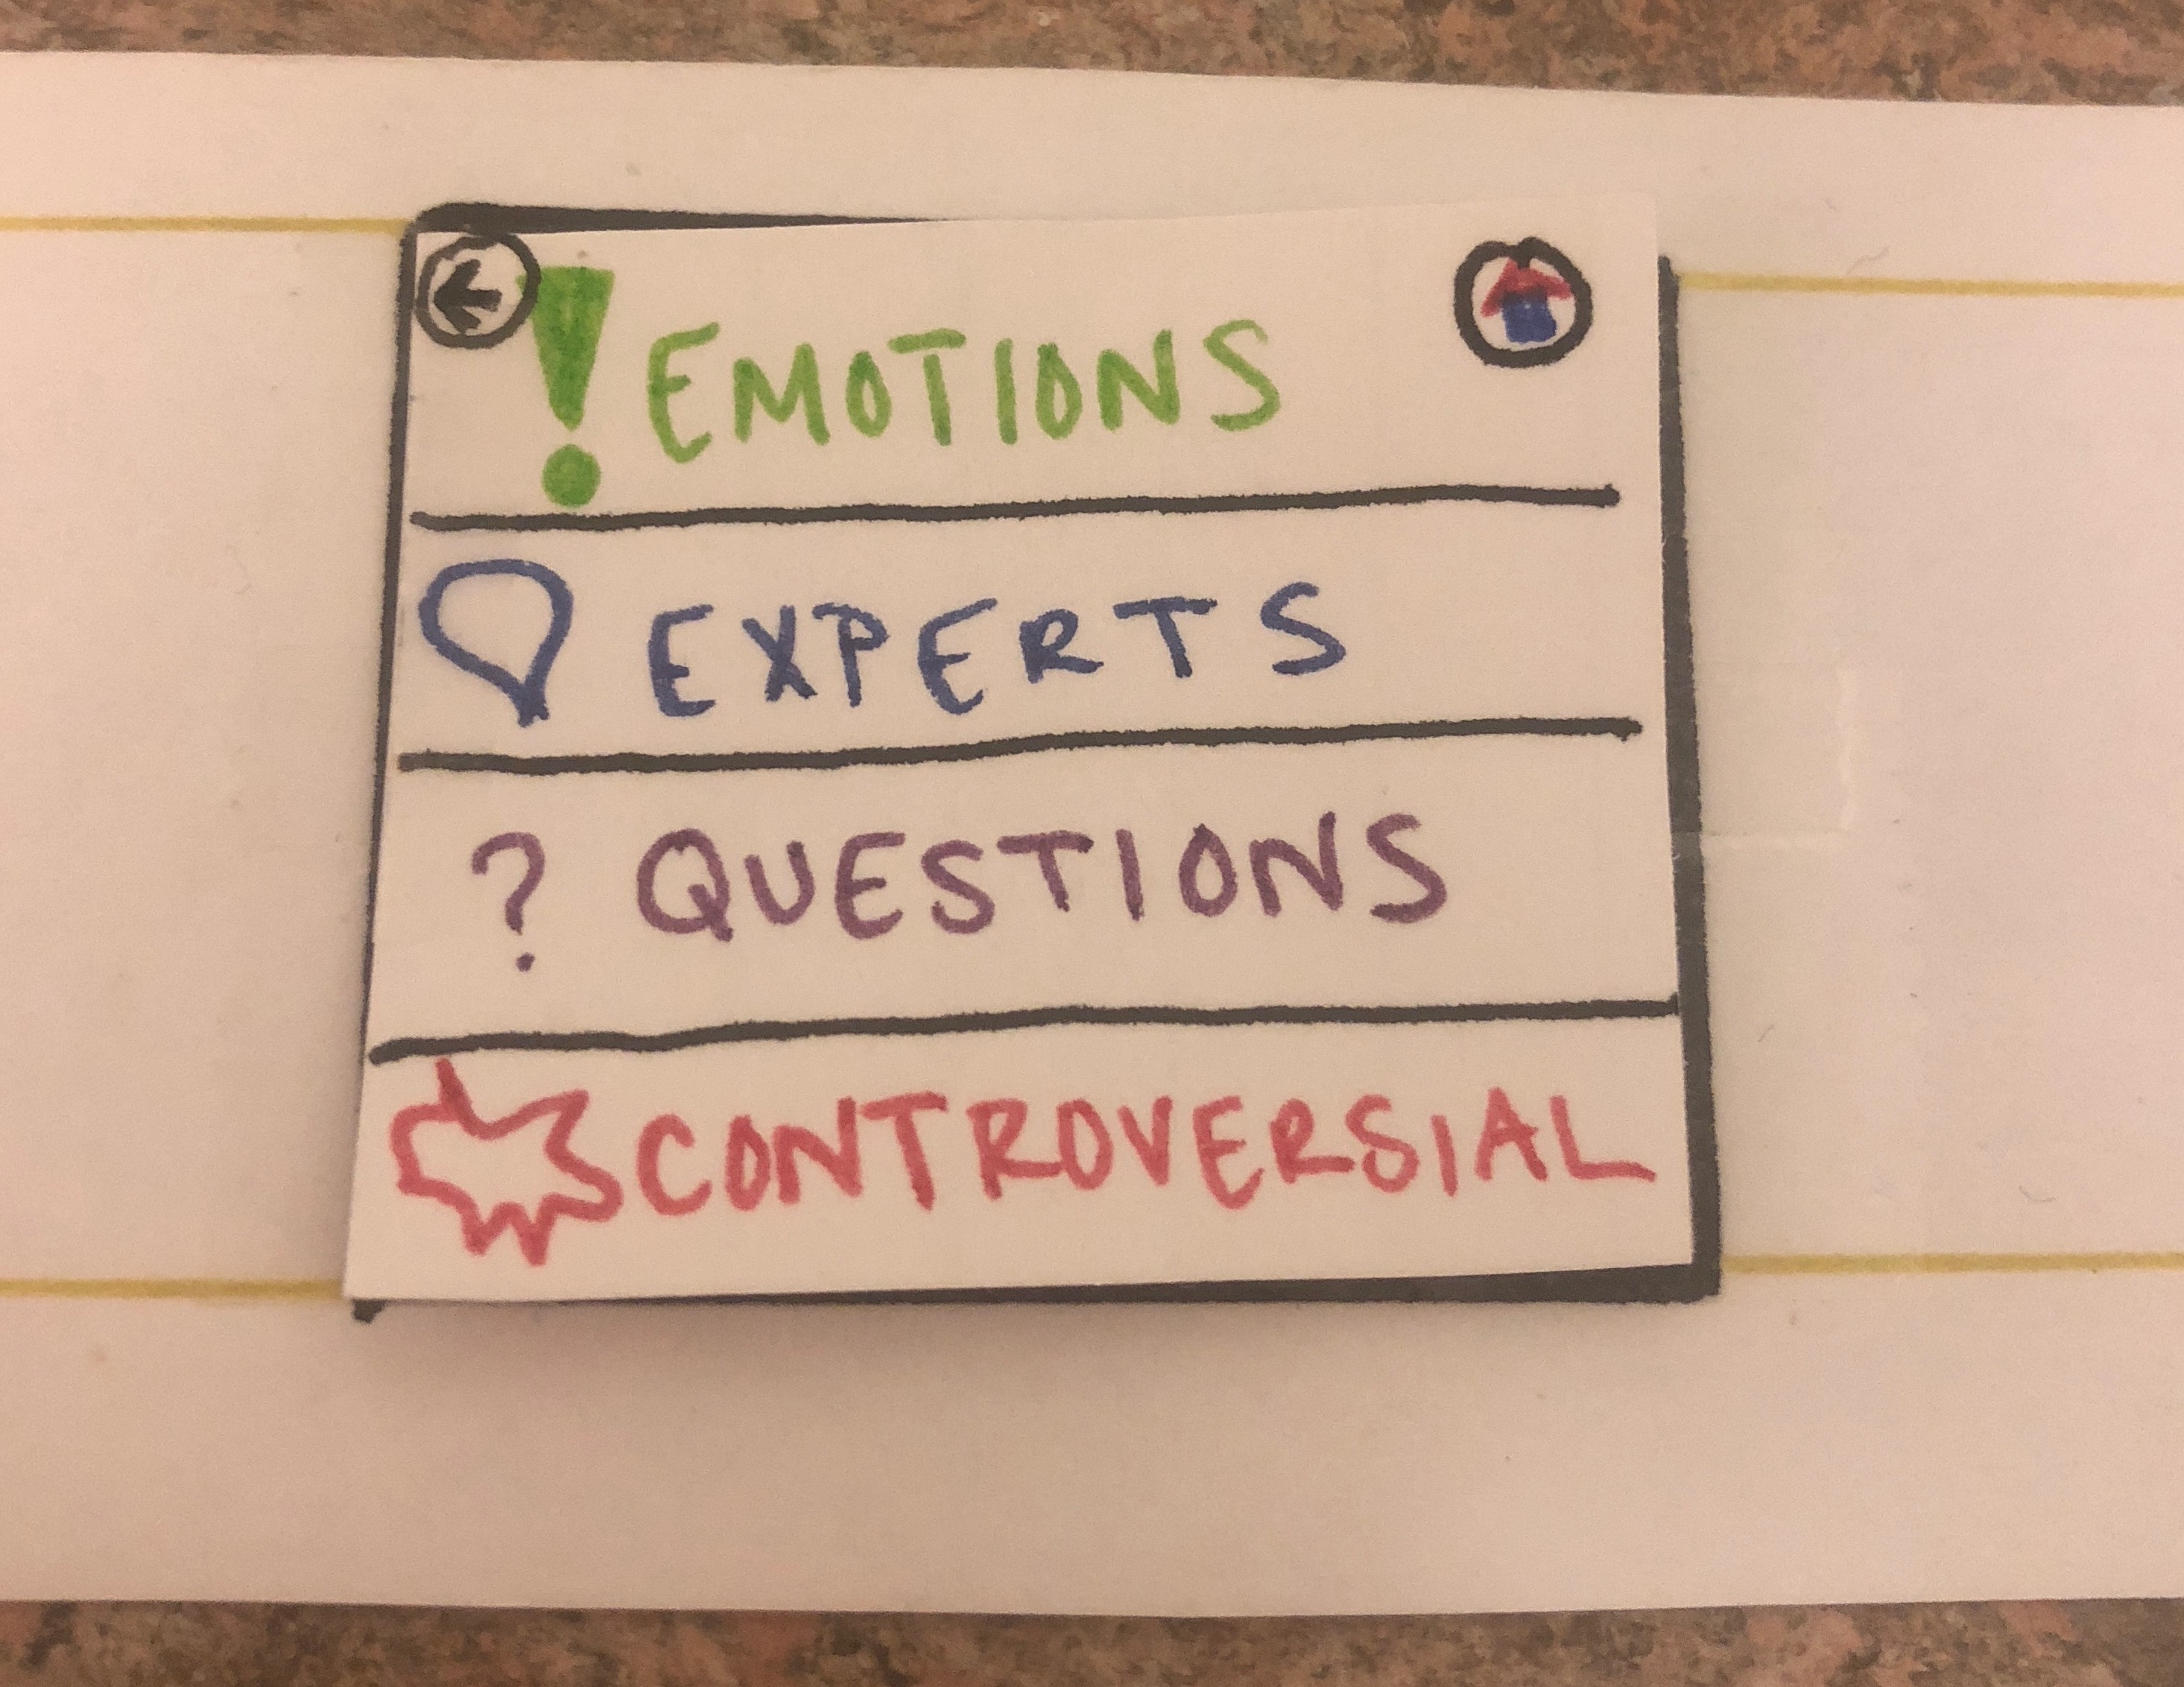 ! EMOTIONS
EXPERTS
? QUESTIONS
CONTROVERSIAL